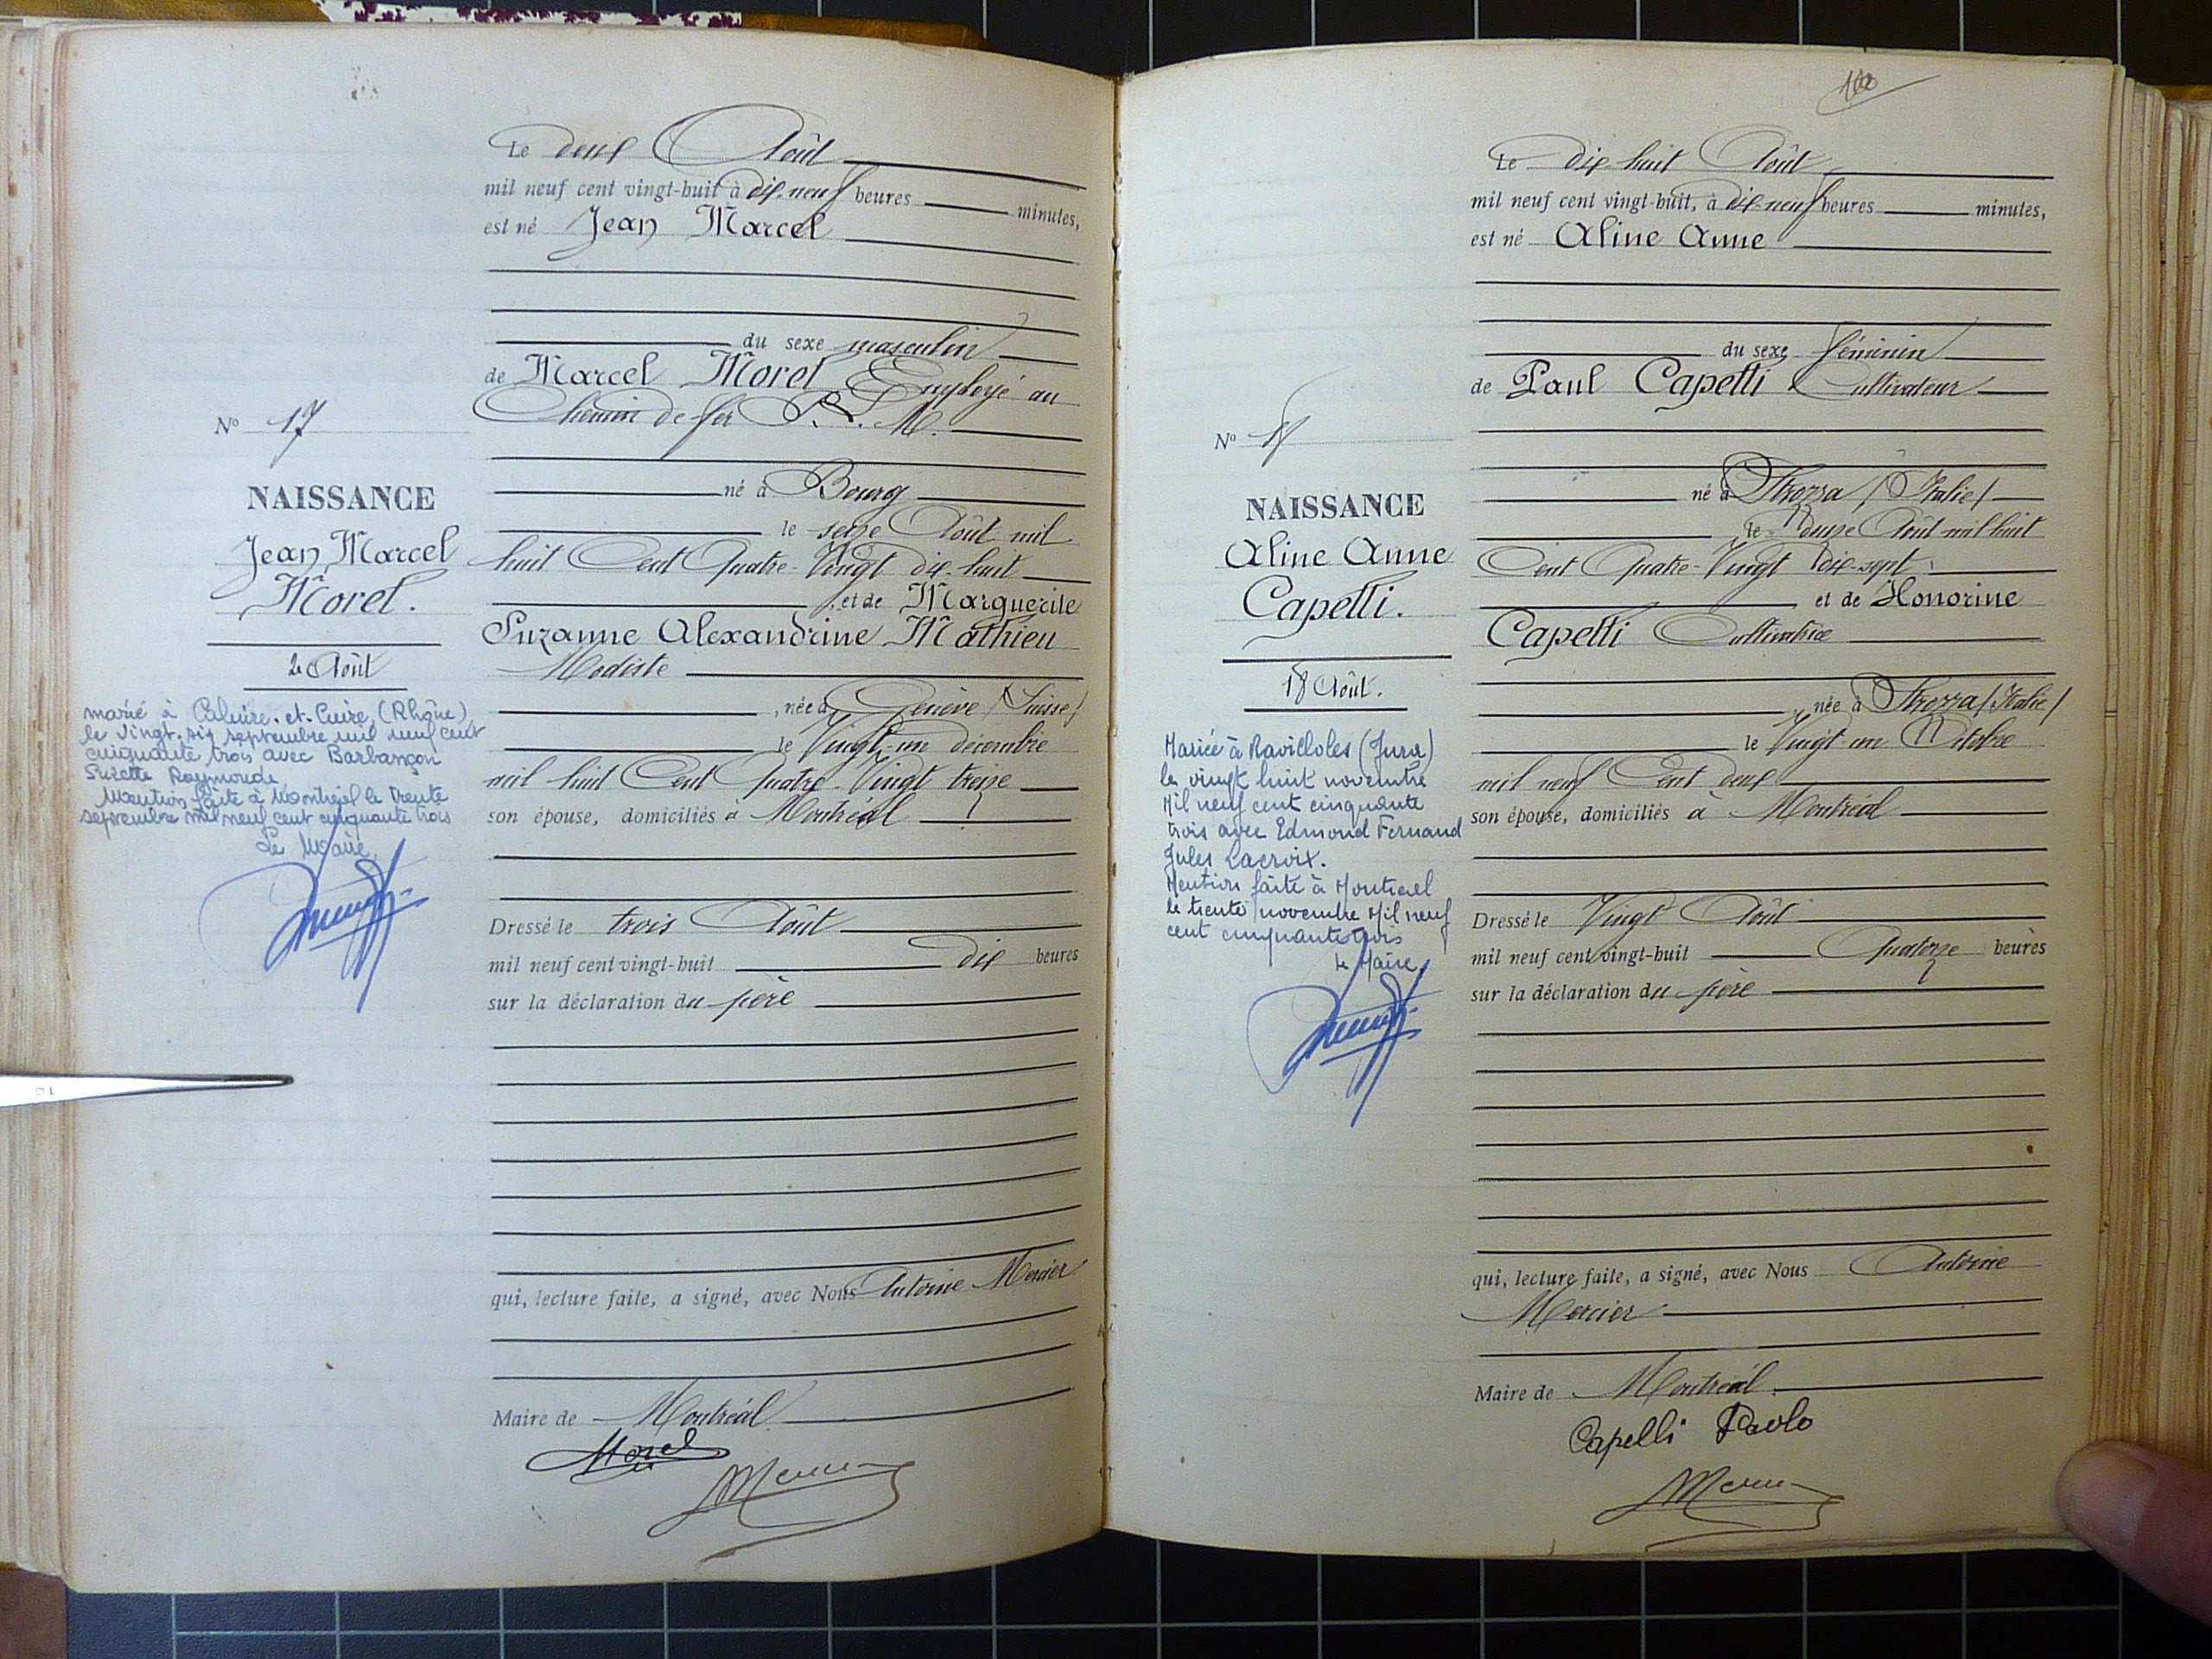 Le deux Août
mil neuf cent vingt-huit à dix-neuf heures minutes,
est né Jean Marcel
du sexe masculin
de Marcel Morel Employé au
Chemin de fer P. L. M.
né à Bourg
le seize Août mil
huit Cent Quatre-Vingt dix-huit
et de Marguerite
Suzanne Alexandrine Mathieu
Modiste
, née à Genève (Suisse)
le Vingt-un décembre
mil huit Cent Quatre-Vingt treize
son épouse, domiciliés à Montréal
Dressé le trois Août
mil neuf cent vingt-huit dix heures
sur la déclaration du père
qui, lecture faite, a signé, avec Nous Antoine Mercier
Maire de Montréal
Morel
Nº 17
NAISSANCE
Jean Marcel
Morel.
2 Août
marié à Caluire-et-Cuire (Rhône)
le vingt-six septembre mil neuf cent
cinquante trois avec Barbançon
Suzette Raymonde
Mention faite à Montréal le trente
septembre mil neuf cent cinquante trois
Le Maire
100
Le dix-huit Août
mil neuf cent vingt-huit, à dix-neuf heures minutes,
est né Aline Anne
du sexe féminin
de Paul Capelli Cultivateur
né à (Italie)
le douze Août mil huit
Cent Quatre-Vingt dix-sept
et de Honorine
Capelli Cultivatrice
née à (Italie)
le Vingt-un Octobre
mil neuf Cent deux
son épouse, domiciliés à Montréal
Dressé le Vingt Août
mil neuf cent vingt-huit Quatorze heures
sur la déclaration du père
qui, lecture faite, a signé, avec Nous Antoine
Mercier
Maire de Montréal
Capelli Paolo
Nº 18
NAISSANCE
Aline Anne
Capelli.
18 Août.
Mariée à Ravilloles (Jura)
le vingt huit novembre
Mil neuf cent cinquante
trois avec Edmond Fernand
Jules Lacroix.
Mention faite à Montréal
le trente novembre Mil neuf
cent cinquante trois
Le Maire